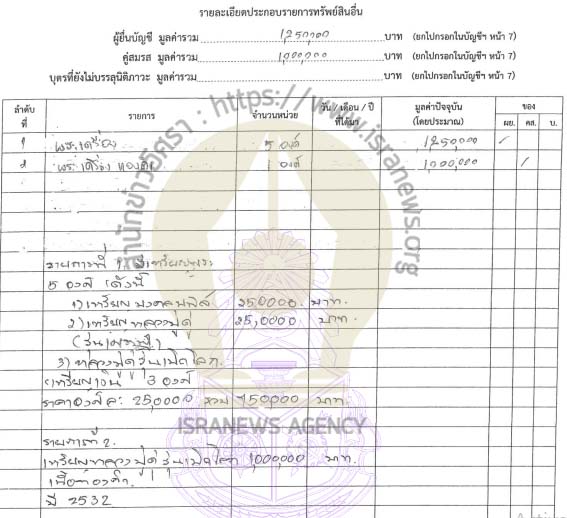 รายละเอียดประกอบรายการทรัพย์สินอื่น
ผู้ยื่นบัญชี มูลค่ารวม 1,250,000 บาท (ยกไปกรอกในบัญชีฯ หน้า 7)
คู่สมรส มูลค่ารวม 1,000,000 บาท (ยกไปกรอกในบัญชีฯ หน้า 7)
บุตรที่ยังไม่บรรลุนิติภาวะ มูลค่ารวม บาท (ยกไปกรอกในบัญชีฯ หน้า 7)
ลำดับที่ รายการ จำนวนหน่วย วัน / เดือน / ปี ที่ได้มา มูลค่าปัจจุบัน (โดยประมาณ) ของ
ผย. คส. บ.
1 พระเครื่อง 5 องค์ 1,250,000 /
2 พระเครื่อง 1 องค์ 1,000,000 /
รายการที่ 1 มีเหรียญพระ
5 องค์ ดังนี้
1) เหรียญ 250000 บาท.
2) เหรียญหลวงปู่ดู่ 25,0000 บาท.
3) หลวงปู่ดู่ รุ่นเปิดโลก.
เหรียญเงิน 3 องค์
ราคาองค์ละ 25,0000 รวม 750,000 บาท.
รายการที่ 2.
เหรียญหลวงปู่ดู่ รุ่นเปิดโลก 1,000,000 บาท.
เนื้อทองคำ.
ปี 2532
สำนักข่าวอิศรา : https://www.isranews.org
ISRANEWS AGENCY